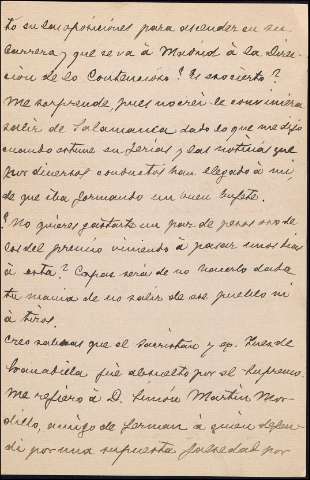 to en las oposiciones para ascender en su
carrera y que se va à Madrid à la Direc-
cion de lo Contencioso? Es eso cierto?
Me sorprende, pues no creí le conviniera
salir de Salamanca dado lo que me dijo
cuando estuve en ferias y las noticias que
por diversos conductos han llegado à mi,
de que iba formando un buen bufete.
? No quieres gastarte un par de pesos
del premio viniendo à pasar unos dias
à esta? Capaz serás de no hacerlo dada
tu mania de no salir de ese pueblo ni
à tiros.
Creo sabras que el Sacristan y ex Juez de
Granadilla fue absuelto por el Supremo.
Me refiero à D. Simón Martin Mor-
dillo, amigo de German à quien defen-
di por una supuesta falsedad por